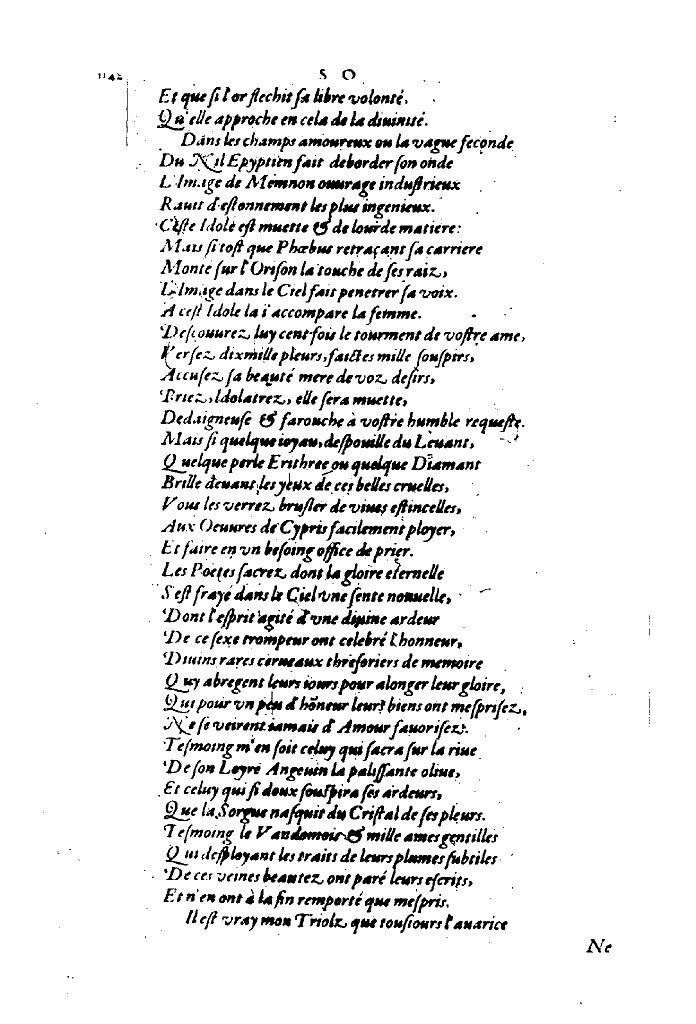 1142
S O
Et que ſi l'or flechit ſa libre volonté,
Qu'elle approche en cela de la diuinité.
Dans les champs amoureux ou la vague feconde
Du Nil Epyptien fait deborder ſon onde
L'Image de Memnon ouurage induſtrieux
Rauit d'eſtonnement les plus ingenieux.
Ceſte Idole eſt muette & de lourde matiere:
Mais ſi toſt que Phœbus retraçant ſa carriere
Monte ſur l'Oriſon la touche de ſes raiz,
L'Image dans le Ciel fait penetrer ſa voix.
A ceſt Idole la i'accompare la femme.
Deſcouurez luy cent fois le tourment de voſtre ame,
Verſez dix mille pleurs, faictes mille ſouſpirs,
Accuſez ſa beauté mere de voz deſirs,
Priez, Idolatrez, elle ſera muette,
Dedaigneuſe & farouche à voſtre humble requeſte.
Mais ſi quelque ioyau, deſpouille du Leuant,
Quelque perle Erithree ou quelque Diamant
Brille deuant les yeux de ces belles cruelles,
Vous les verrez bruſler de viues eſtincelles,
Aux Oeuures de Cypris facilement ployer,
Et faire en vn beſoing office de prier.
Les Poetes ſacrez dont la gloire eternelle
S'eſt frayé dans le Ciel vne ſente nouuelle,
Dont l'eſprit agité d'vne diuine ardeur
De ce ſexe trompeur ont celebré l'honneur,
Diuins rares cerueaux threſoriers de memoire
Quy abregent leurs iours pour alonger leur gloire,
Qui pour vn peu d'hõneur leurs biens ont meſpriſez,
Ne ſe veirent iamais d'Amour fauoriſez.
Teſmoing m'en ſoit celuy qui ſacra ſur la riue
De ſon Loyre Angeuin la paliſſante oliue,
Et celuy qui ſi doux ſouſpira ſes ardeurs,
Que la Sorgue naſquit du Criſtal de ſes pleurs.
Teſmoing le Vandomois & mille ames gentilles
Qui deſployant les traits de leurs plumes ſubtiles
De ces veines beautez ont paré leurs eſcrits,
Et n'en ont à la fin remporté que meſpris.
Il eſt vray mon Triolz que touſiours l'auarice
Ne